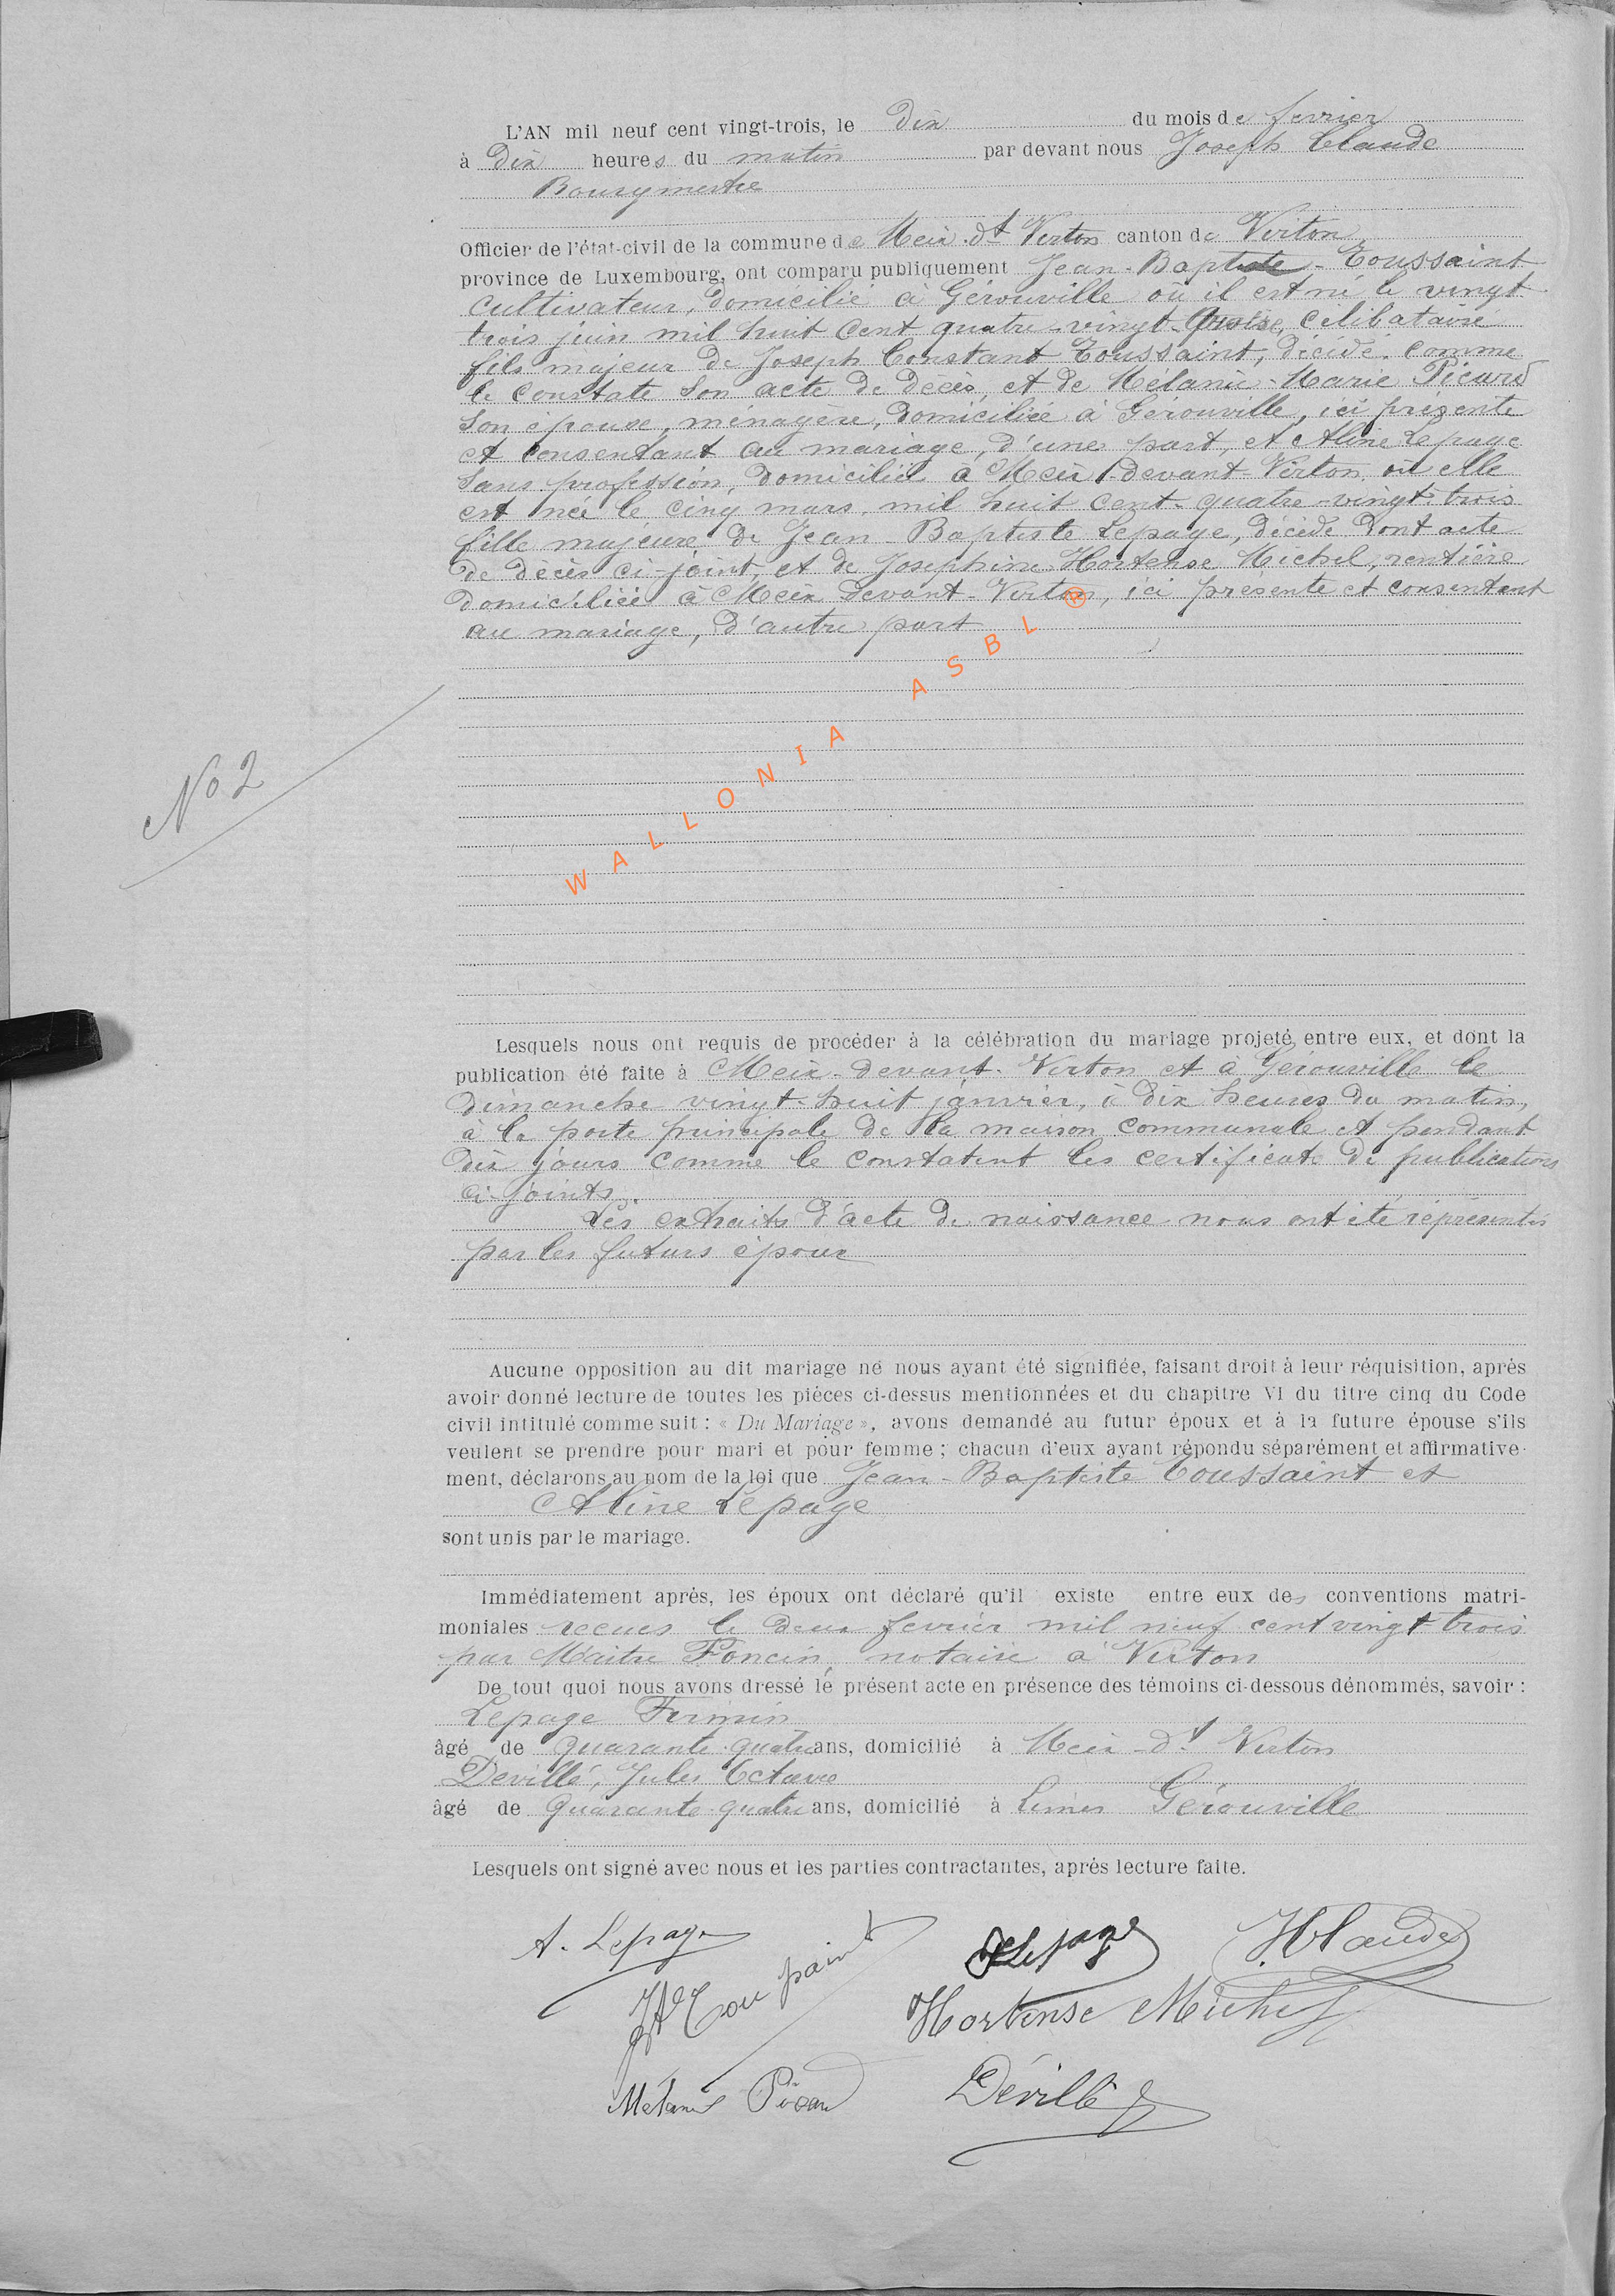 L'AN mil neuf cent vingt-trois, le Dix du mois de fevrier
à Dix heures du matin par devant nous Joseph Claude
Bourgmestre
Officier de l'état-civil de la commune de Meix-dt Virton canton de Virton
province de Luxembourg, ont comparu publiquement Jean-Baptiste-Toussaint
cultivateur, domicilié à Gérouville où il est né le vingt
trois juin mil huit cent quatre-vingt- célibataire
fils majeur de Joseph Constant Toussaint, décédé, comme
le constate son acte de décès, et de Mélanie-Marie Picard
son épouse, ménagère, domiciliée à Gérouville, ici présente
et consentant au mariage, d'une part, et Aline Lepage
sans profession, domiciliée à Meix-devant-Virton, où elle
est née le cinq mars, mil huit cent-quatre-vingt-trois
fille majeure de Jean-Baptiste Lepage, décédé dont acte
de décès ci-joint, et de Josephine-Hortense Michel, rentière
domiciliée à Meix devant-Virton, ici présente et consentant
au mariage, d'autre part
WALLONIA ASBL ®
No 2
Lesquels nous ont requis de procéder à la célébration du mariage projeté entre eux, et dont la
publication été faite à Meix-devant-Virton et à Gérouville le
dimanche vingt-huit janvier, à dix heures du matin,
à la porte principale de la maison communale et pendant
dix jours comme le constatent les certificats de publications
ci-joints.
Les extraits d'acte de naissance nous ont été représentés
par les futurs époux
Aucune opposition au dit mariage ne nous ayant été signifiée, faisant droit à leur réquisition, après
avoir donné lecture de toutes les pièces ci-dessus mentionnées et du chapitre VI du titre cinq du Code
civil intitulé comme suit : « Du Mariage », avons demandé au futur époux et à la future épouse s'ils
veulent se prendre pour mari et pour femme ; chacun d'eux ayant répondu séparément et affirmative-
ment, déclarons au nom de la loi que Jean-Baptiste Toussaint et
Aline Lepage
sont unis par le mariage.
Immédiatement après, les époux ont déclaré qu'il existe entre eux des conventions matri-
moniales recues le deux fevrier mil neuf cent vingt-trois
par Maitre Foncin, notaire à Virton
De tout quoi nous avons dressé le présent acte en présence des témoins ci-dessous dénommés, savoir :
Lepage Firmin
âgé de quarante-quatre ans, domicilié à Meix-dt Virton
Devillé, Jules Octave
âgé de Quarante-quatre ans, domicilié à Limes Gérouville
Lesquels ont signé avec nous et les parties contractantes, après lecture faite.
A. Lepage
Toussaint
FLepage
J Claude
Hortense Michel
Mélanie Picard
Dévillé